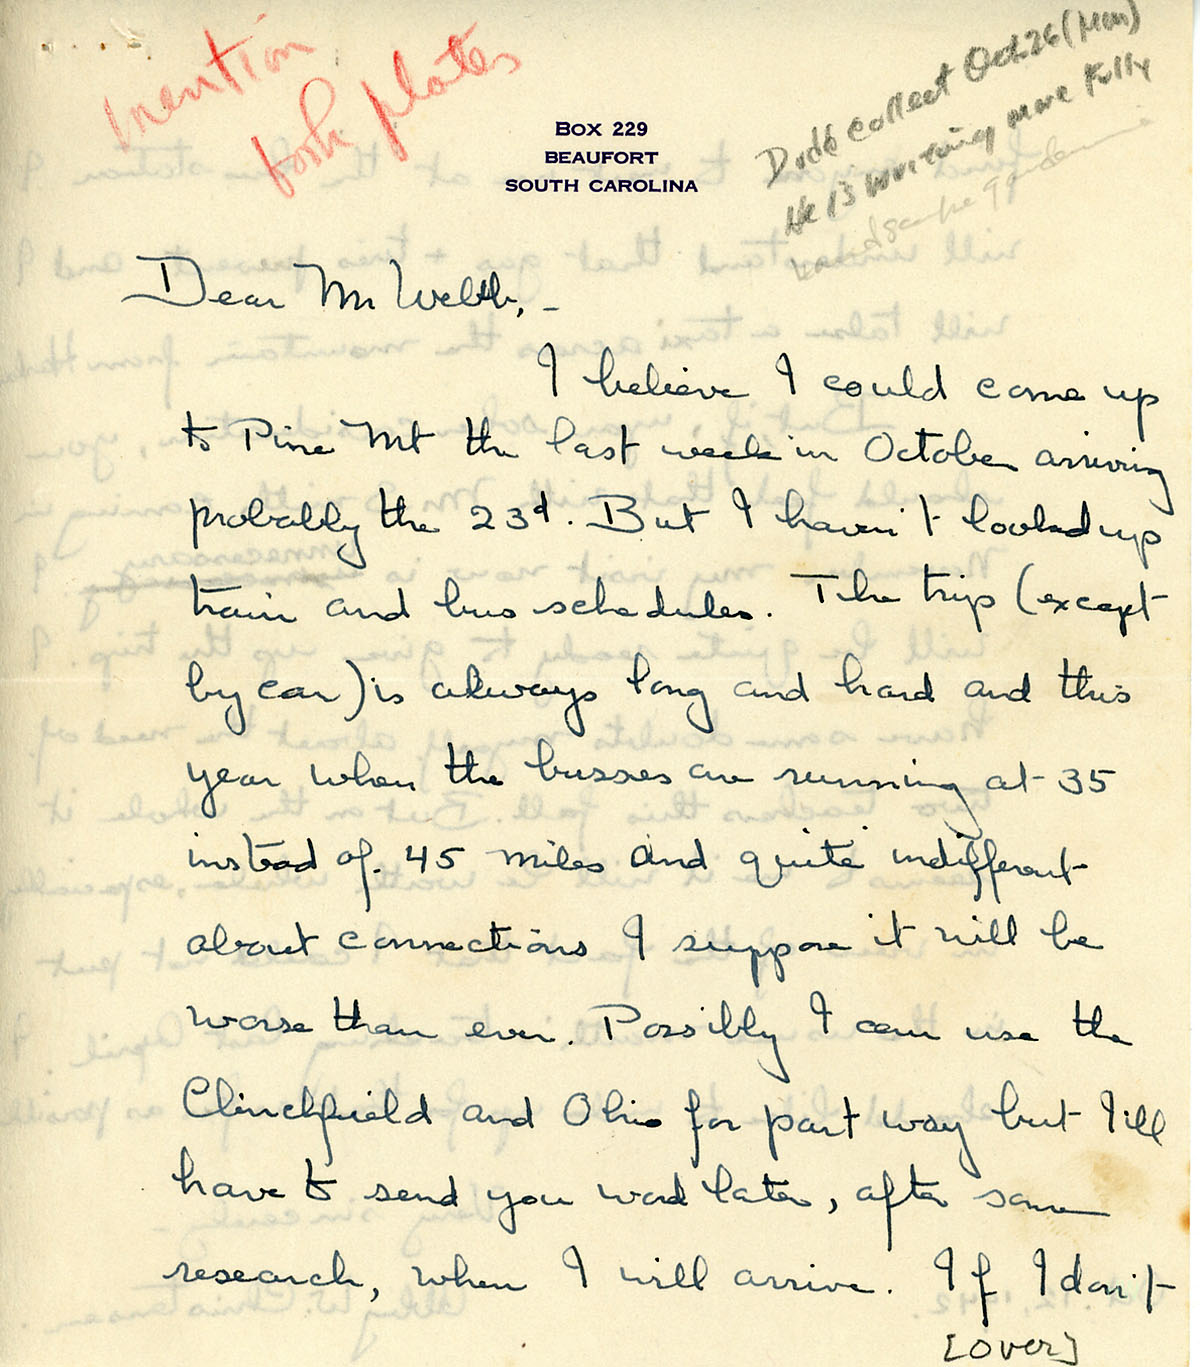 mention
book plates
Dodd collect Oct 26 (Mon)
He is writing more fully
landscape gardening
Box 229
BEAUFORT
SOUTH CAROLINA
Dear Mr Webb, -
I believe I could come up
to Pine Mt the last week in October arriving
probably the 23d. But I haven't looked up
train and bus schedules. The trip (except
by car) is always long and hard and this
year when the busses are running at 35
instead of 45 miles and quite indifferent
about connections I suppose it will be
worse than ever. Possibly I can use the
Clinchfield and Ohio for part way but I'll
have to send you word later, after some
research, when I will arrive. If I don't
[over]